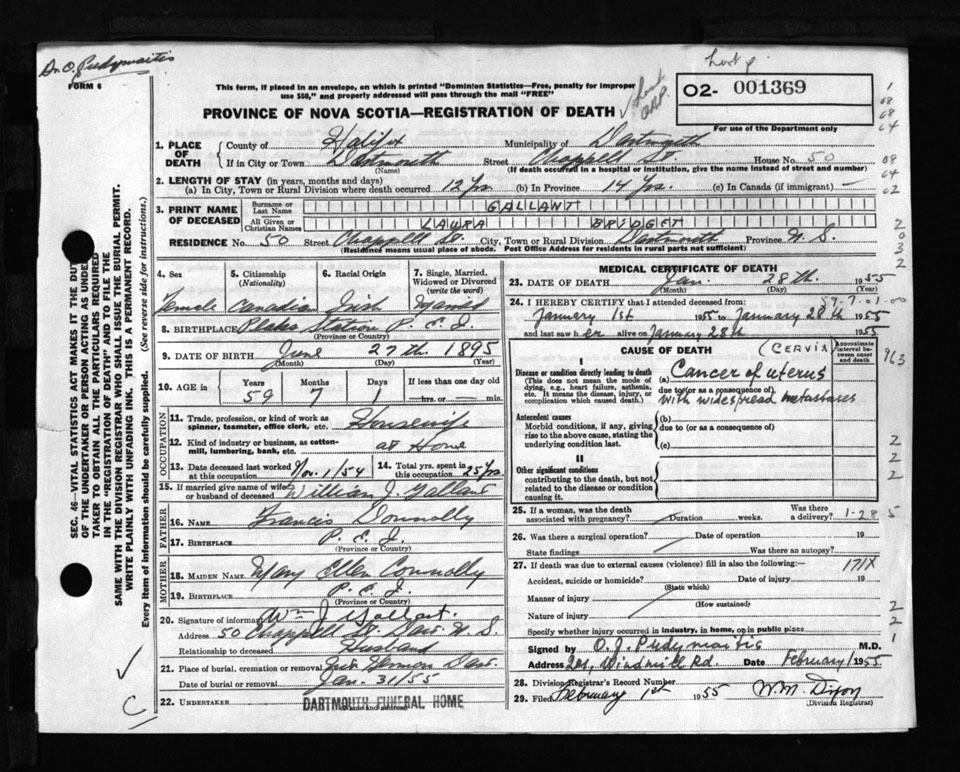 Dr. O. Pudymaitis
FORM 6
This form, if placed in an envelope, on which is printed "Dominion Statistics—Free, penalty for improper use $50," and properly addressed will pass through the mail "FREE"
PROVINCE OF NOVA SCOTIA—REGISTRATION OF DEATH
02- 001369
For use of the Department only
1. PLACE OF DEATH
County of Halifax Municipality of Dartmouth
If in City or Town Dartmouth Street Chappell St. House No. 50
(Name) (If death occurred in a hospital or institution, give the name instead of street and number)
2. LENGTH OF STAY (in years, months and days)
(a) In City, Town or Rural Division where death occurred 12 Yrs. (b) In Province 14 Yrs. (c) In Canada (if immigrant) —
3. PRINT NAME OF DECEASED
Surname or Last Name GALLANT
All Given or Christian Names LAURA BRIDGET
RESIDENCE No. 50 Street Chappell St. City, Town or Rural Division Dartmouth Province N. S.
(Residence means usual place of abode. Post Office Address for residents in rural parts not sufficient)
4. Sex
Female
5. Citizenship (Nationality)
Canadian
6. Racial Origin
Irish
7. Single, Married, Widowed or Divorced (write the word)
Married
8. BIRTHPLACE Station P. E. I.
(Province or Country)
9. DATE OF BIRTH June 27th 1895
(Month) (Day) (Year)
10. AGE in Years 59 Months 7 Days 1 If less than one day old —hrs. or —min.
OCCUPATION
11. Trade, profession, or kind of work as spinner, teamster, office clerk, etc. Housewife
12. Kind of industry or business, as cotton-mill, lumbering, bank, etc. at Home
13. Date deceased last worked at this occupation Nov. 1/54
14. Total yrs. spent in this occupation 25 Yrs.
15. If married give name of wife or husband of deceased William J. Gallant
FATHER
16. NAME Francis Donnolly
17. BIRTHPLACE P. E. I.
(Province or Country)
MOTHER
18. MAIDEN NAME Mary Ellen Connolly
19. BIRTHPLACE P. E. I.
(Province or Country)
20. Signature of informant Wm J Gallant.
Address 50 Chappell St. Dart. N. S.
Relationship to deceased Husband
21. Place of burial, cremation or removal Mt. Hermon Dart.
Date of burial or removal Jan. 31/55
22. UNDERTAKER DARTMOUTH FUNERAL HOME
(Name and address)
MEDICAL CERTIFICATE OF DEATH
23. DATE OF DEATH Jan. 28th. 1955
(Month) (Day) (Year)
59-7-01-00
24. I HEREBY CERTIFY that I attended deceased from:
January 1st 1955 to January 28th 1955
and last saw her alive on January 28th 1955
CAUSE OF DEATH (CERVIX)
Approximate interval between onset and death
I
Disease or condition directly leading to death
(This does not mean the mode of dying, e.g., heart failure, asthenia, etc. It means the disease, injury, or complication which caused death.)
(a) Cancer of uterus
due to (or as a consequence of)
with widespread metastases
Antecedent causes
Morbid conditions, if any, giving rise to the above cause, stating the underlying condition last.
(b)
due to (or as a consequence of)
(c)
II
Other significant conditions contributing to the death, but not related to the disease or condition causing it.
25. If a woman, was the death associated with pregnancy? Duration weeks. Was there a delivery? 1-28 5
26. Was there a surgical operation? Date of operation 19
State findings Was there an autopsy?
27. If death was due to external causes (violence) fill in also the following:— 171X
Accident, suicide or homicide? Date of injury 19
(State which)
Manner of injury
(How sustained)
Nature of injury
Specify whether injury occurred in industry, in home, or in public place
Signed by O. J. Pudymaitis M.D.
Address 201, Windmill Rd. Date February 1 1955
28. Division Registrar's Record Number
29. Filed February 1st 1955 W. M. Dixon
(Division Registrar)
SEC. 46—VITAL STATISTICS ACT MAKES IT THE DUTY OF THE UNDERTAKER OR PERSON ACTING AS UNDERTAKER TO OBTAIN ALL THE PARTICULARS REQUIRED IN THE "REGISTRATION OF DEATH" AND TO FILE THE SAME WITH THE DIVISION REGISTRAR WHO SHALL ISSUE THE BURIAL PERMIT.
WRITE PLAINLY WITH UNFADING INK. THIS IS A PERMANENT RECORD.
Every item of information should be carefully supplied. (See reverse side for instructions.)
C
1
08
08
64
08
64
02
2
0
3
2
963
2
2
2
2
2
1